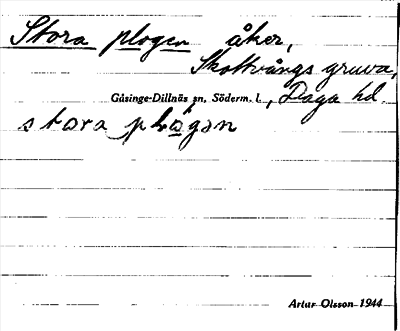 Stora plogen åker,
Skottvångs gruva,
Gåsinge-Dillnäs sn, Söderm. l., Daga hd.
stora plògən
Artur Olsson 1944